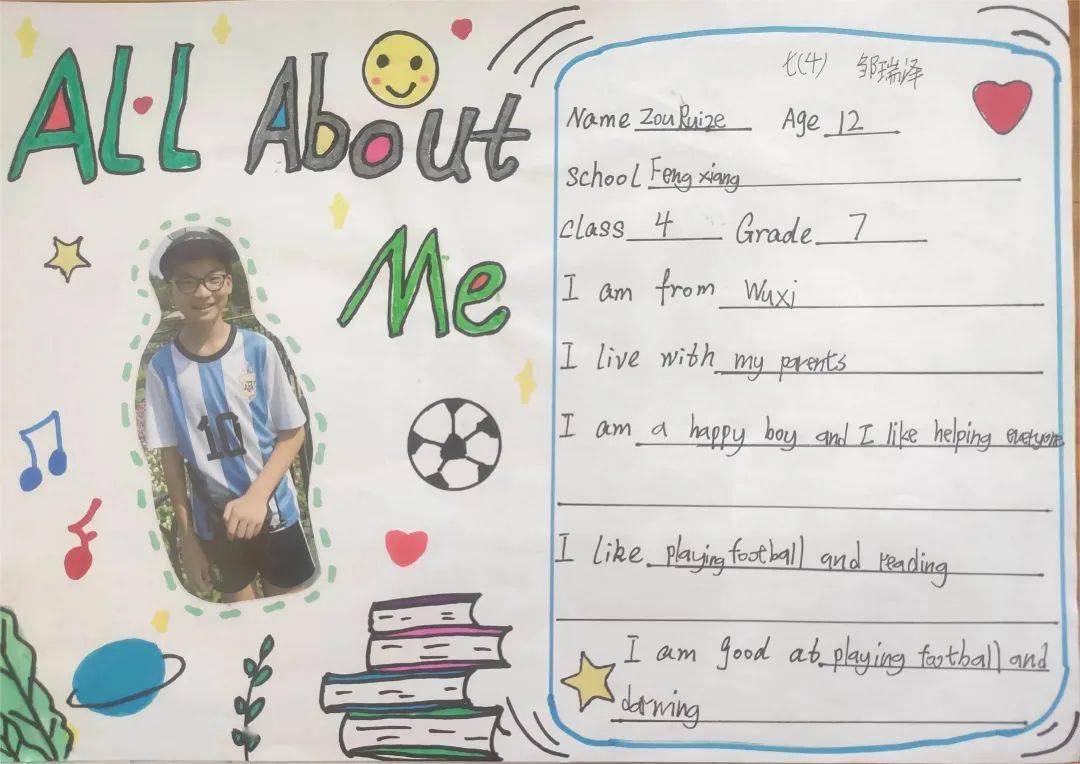 All About
Me
10
七(4) 邹瑞泽
Name Zou Ruize Age 12
school Feng xiang
class 4 Grade 7
I am from Wuxi
I live with my parents
I am a happy boy and I like helping everyone
I like playing football and reading
I am good at playing football and